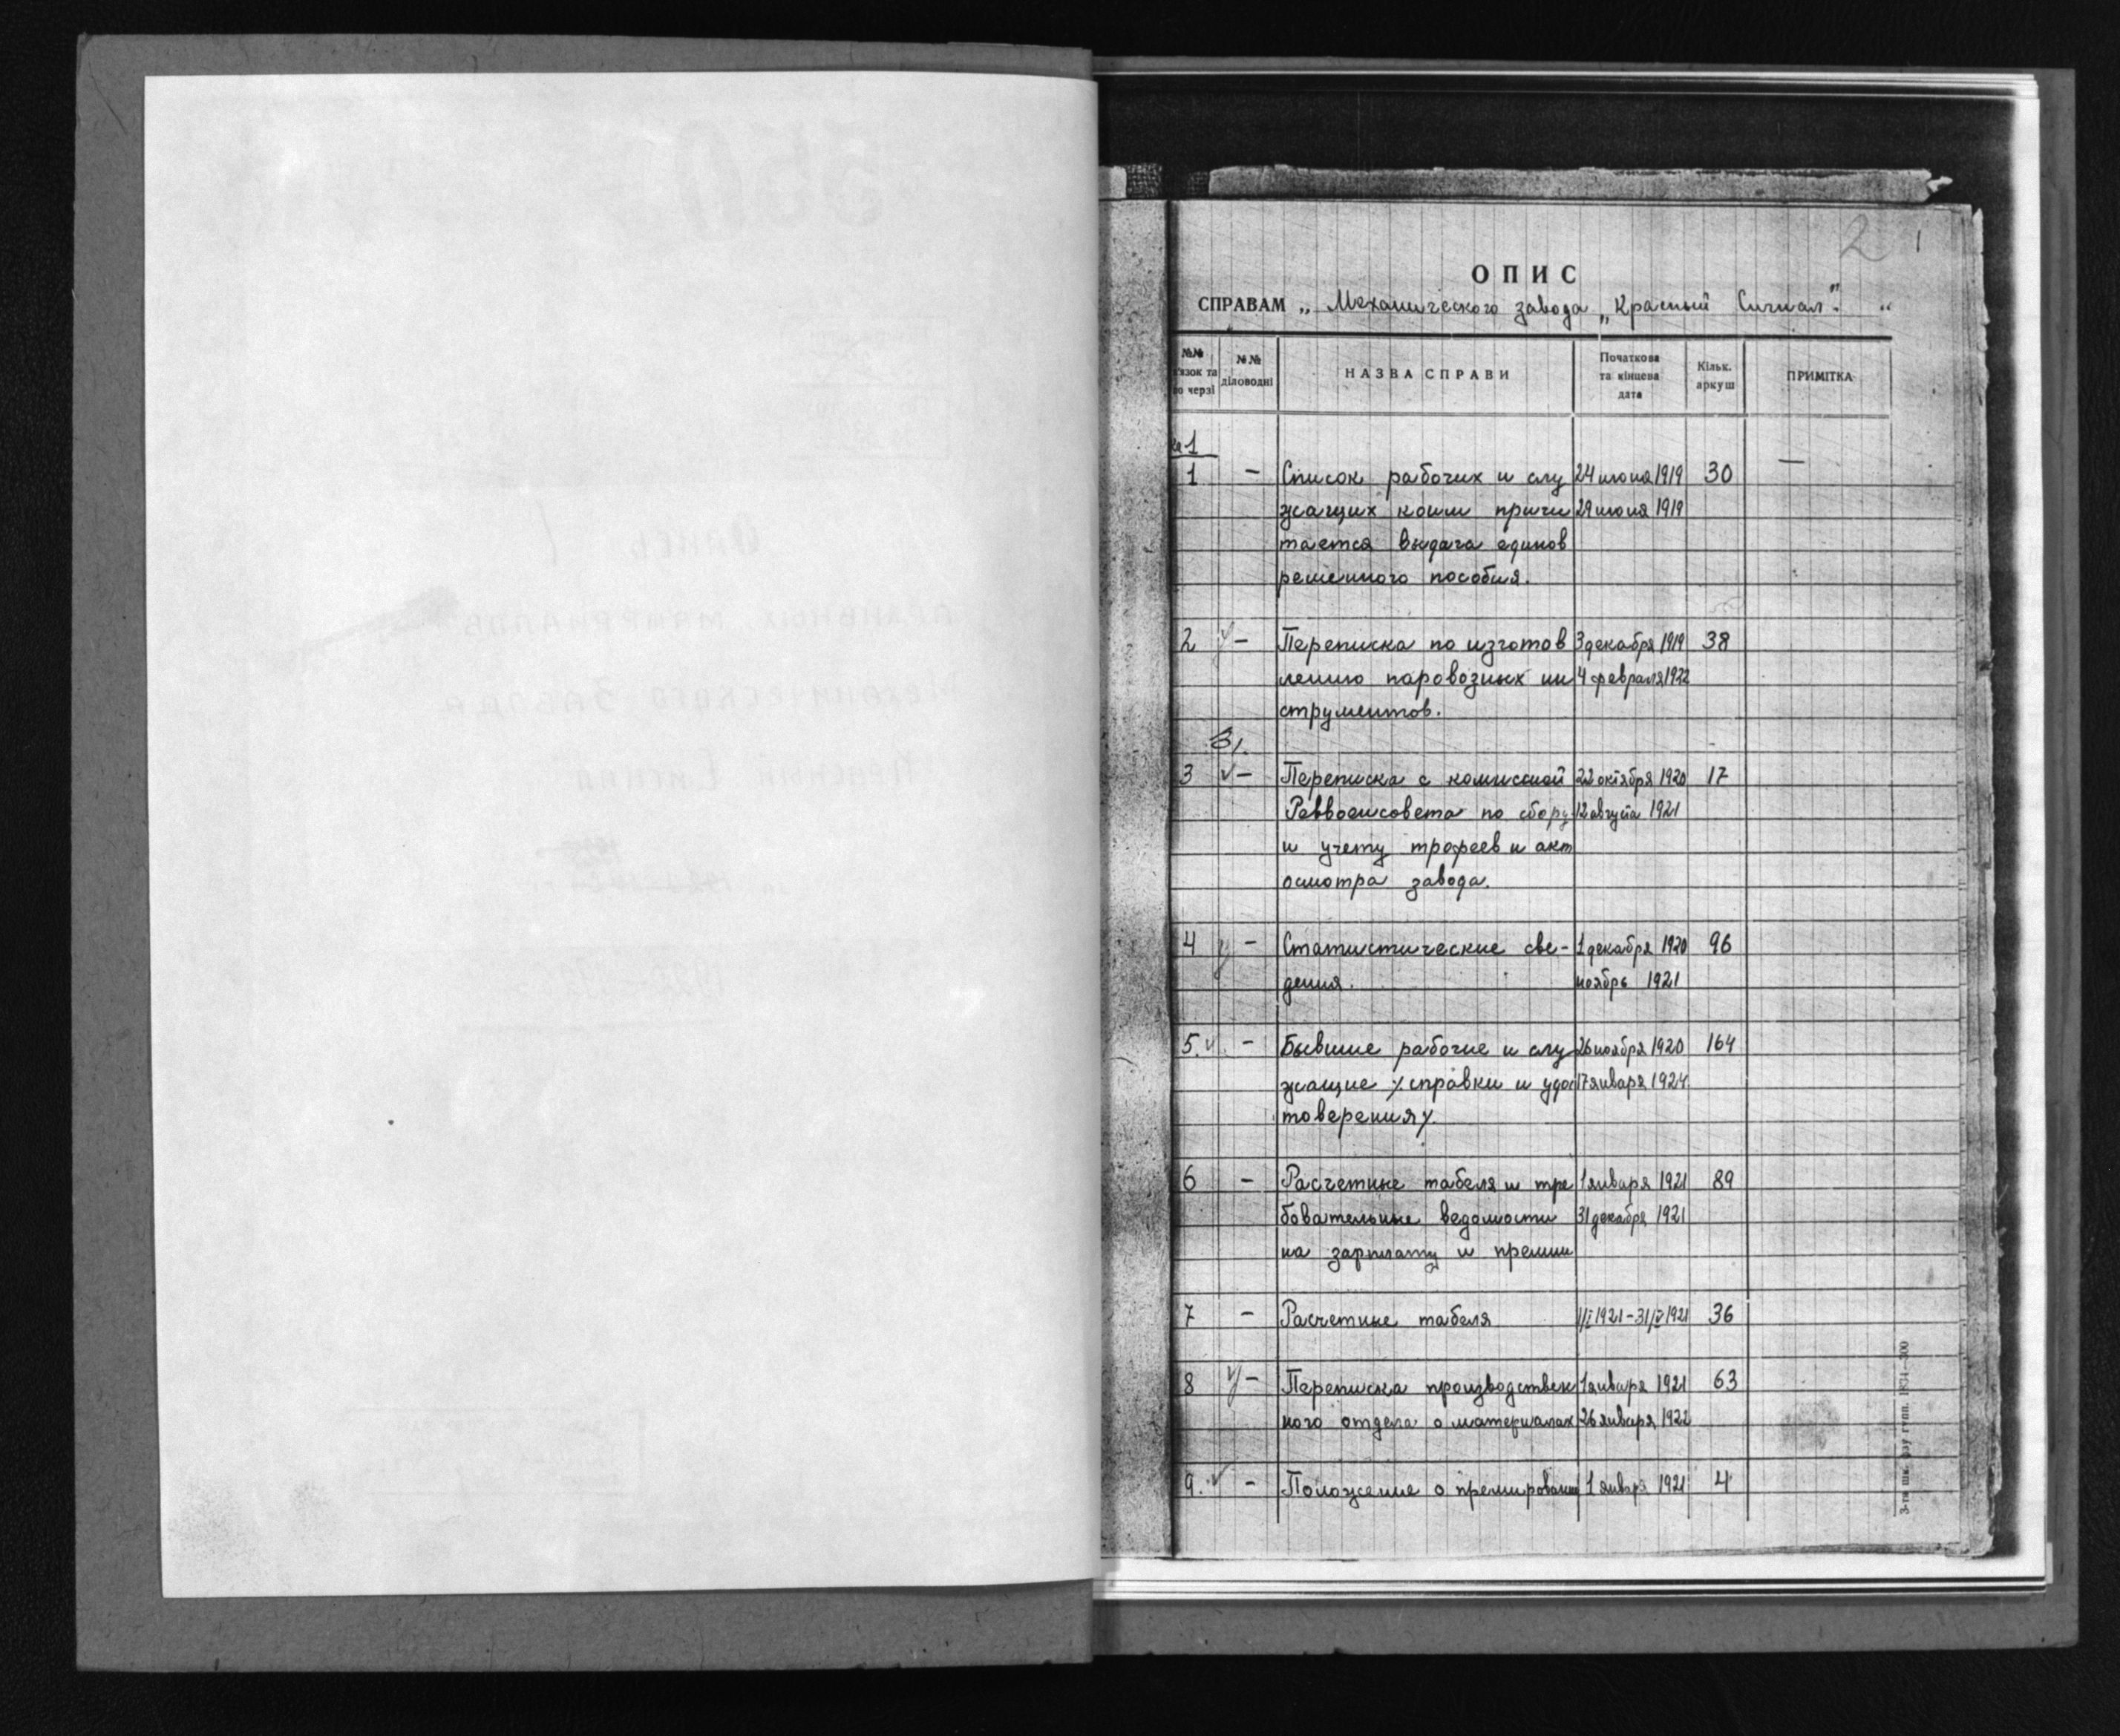 2 1
ОПИС
СПРАВАМ „ Механического завода „Красный Сигнал". "
№№ №№ НАЗВА СПРАВИ Початкова та кінцева дата Кільк. аркуш ПРИМІТКА
в'язок та по черзі діловодні
№1
1 – Список рабочих и слу 24 июня 1919 30 —
жащих коим причи 29 июня 1919
тается выдача единов
ременного пособия.
2 – Переписка по изготов 3 декабря 1919 38
лению паровозных ин 4 февраля 1922
струментов.
3 – Переписка с комиссией 22 октября 1920 17
Реввоенсовета по сбору 12 августа 1921
и учету трофеев и акт
осмотра завода.
4 – Статистические све- 1 декабря 1920 96
дения. ноябрь 1921
5. – Бывшие рабочие и слу 26 ноября 1920 164
жащие /справки и удос 17 января 1924
товерения/.
6 – Расчетные табеля и тре 1 января 1921 89
бовательные ведомости 31 декабря 1921
на зарплату и премии
7 – Расчетные табеля 1/I 1921 – 31/V 1921 36
8 – Переписка производствен 1 января 1921 63
ного отдела о материалах 26 января 1922
9. – Положение о премировании 1 января 1921 4